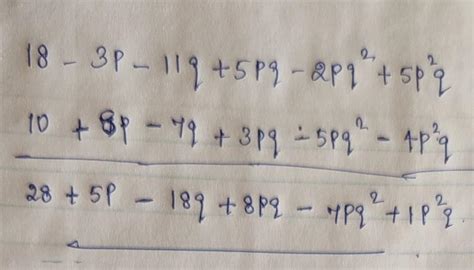 18 - 3p - 11q + 5pq - 2pq² + 5p²q
10 + 8p - 7q + 3pq - 5pq² - 4p²q
28 + 5p - 18q + 8pq - 7pq² + 1p²q